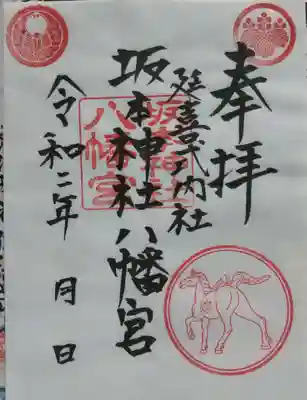 奉拝
延喜式内社
坂本神社八幡宮
令和二年 月 日
坂本神社
八幡宮